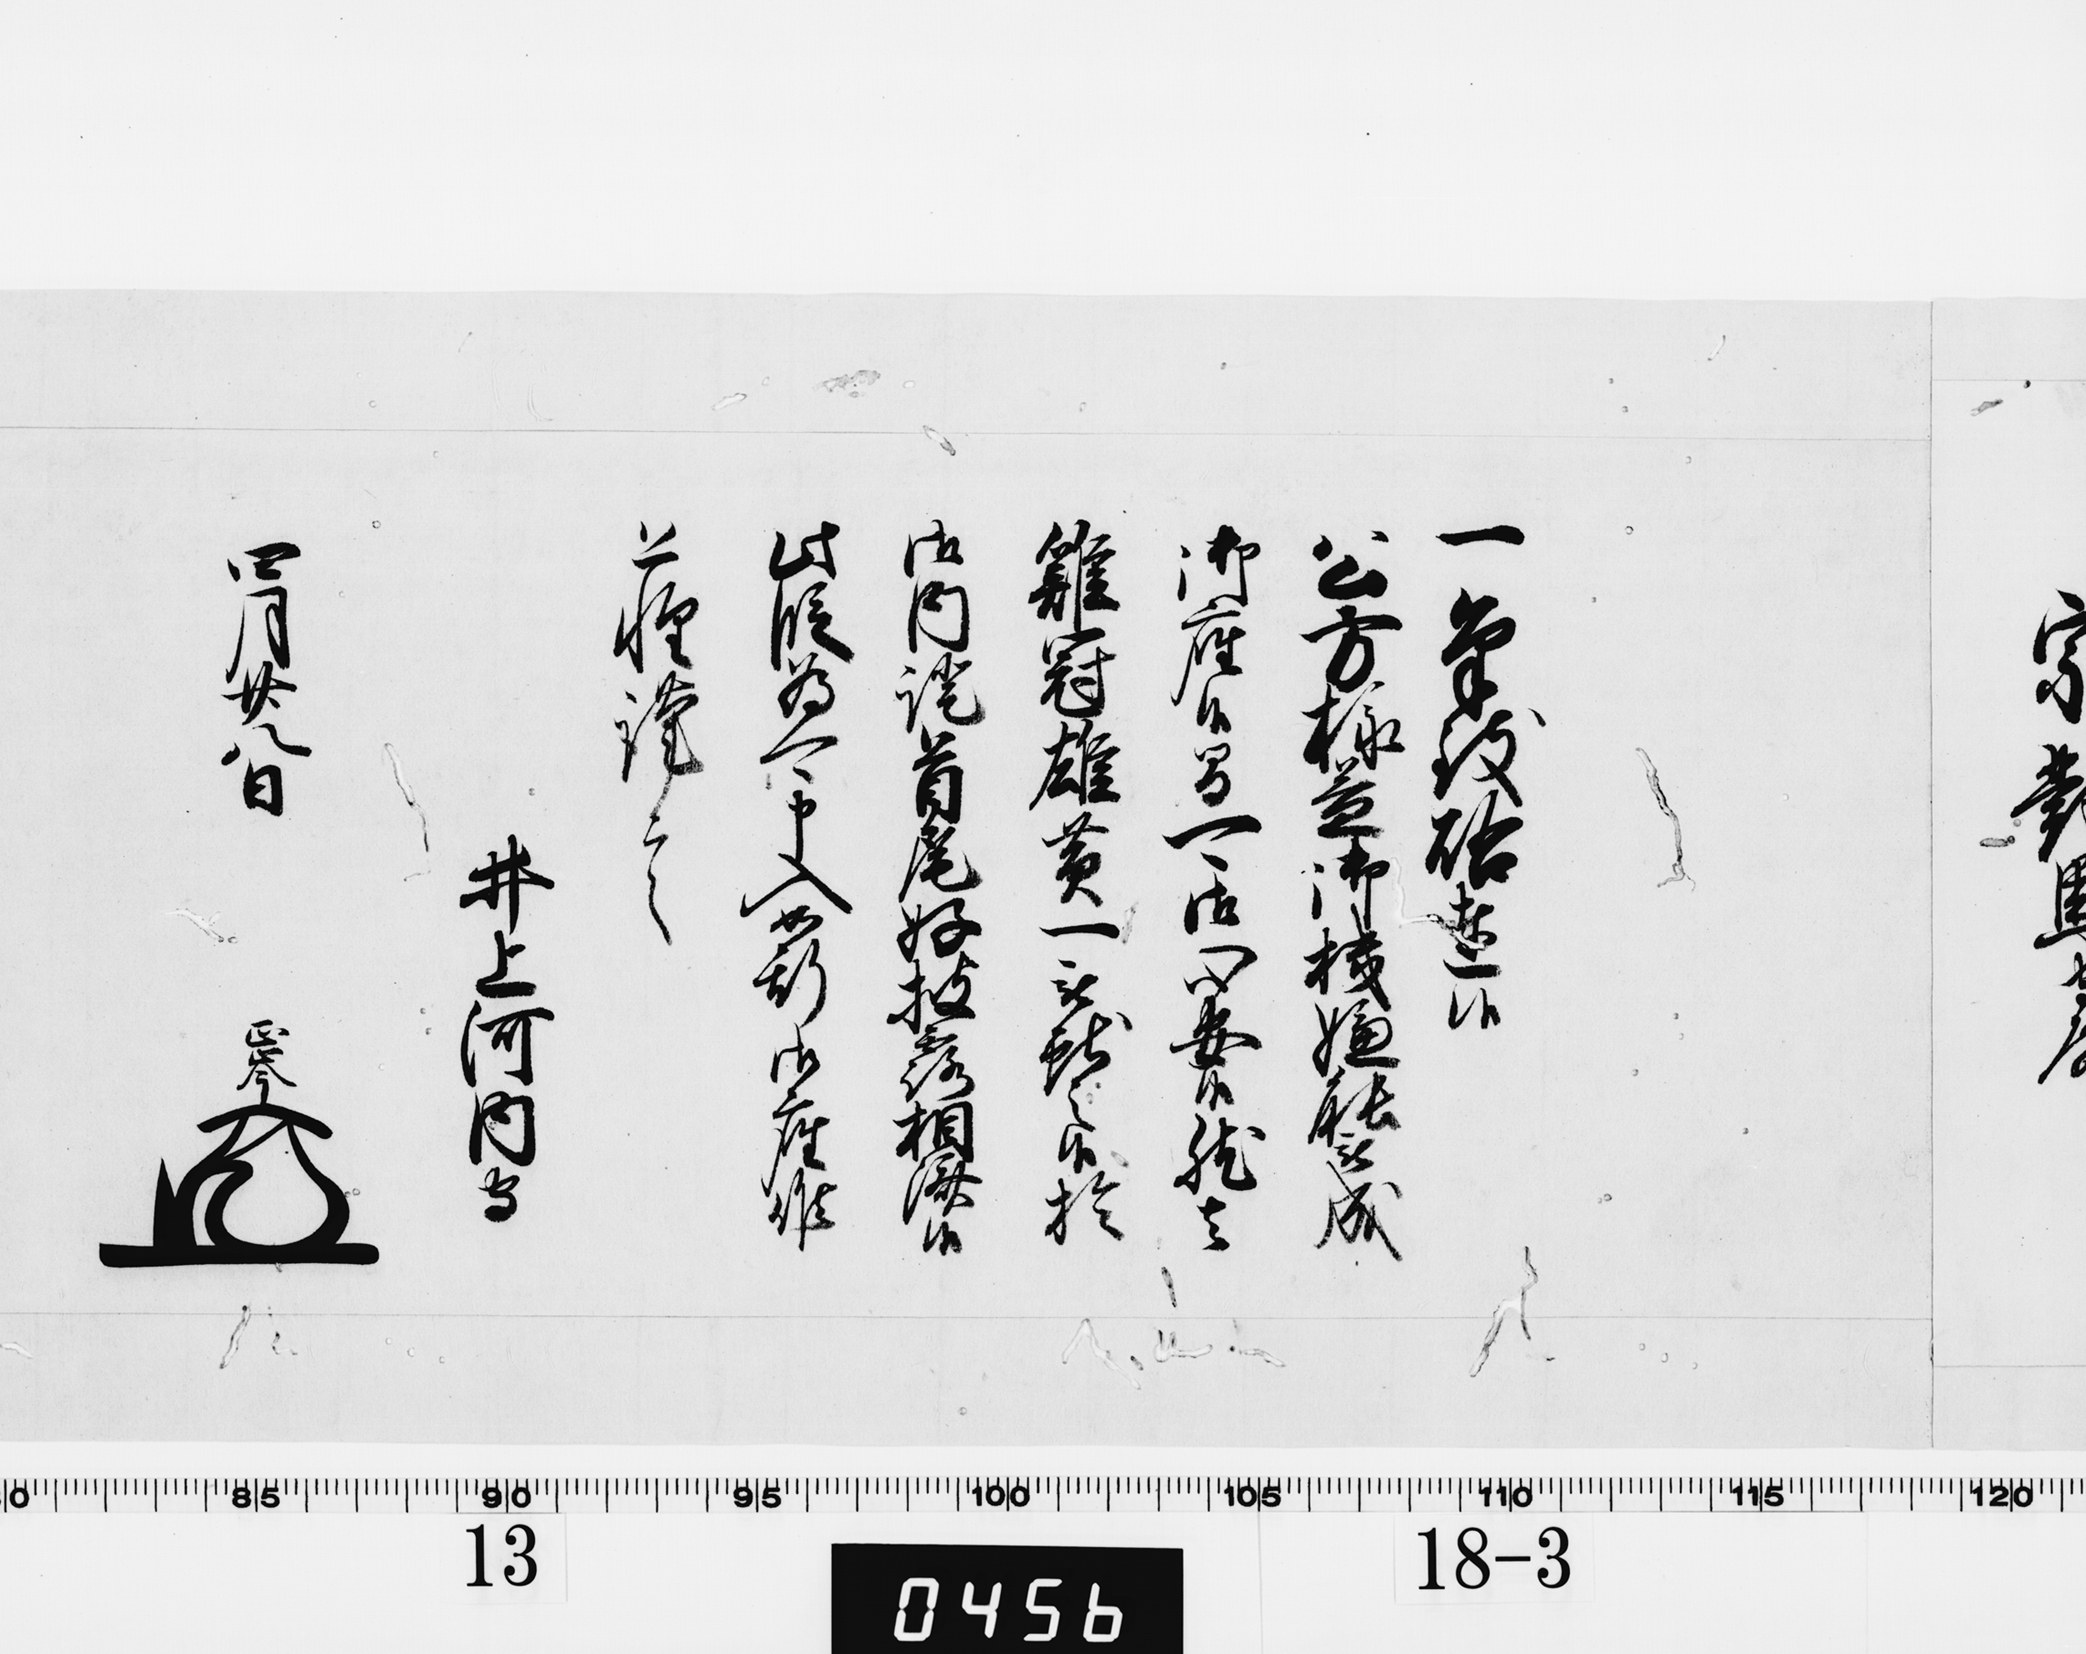 宗對馬守殿
一筆致啓達候
公方様益御機嫌能被成
御座候間可御心安候然者
雞冠雄黄一被献之候於
御内證首尾好披露相濟候
此段為可申入如斯御座候
恐惶謹言
井上河内守
四月廿八日
正岑
85 90 95 100 105 110 115 120
13 18-3
0456